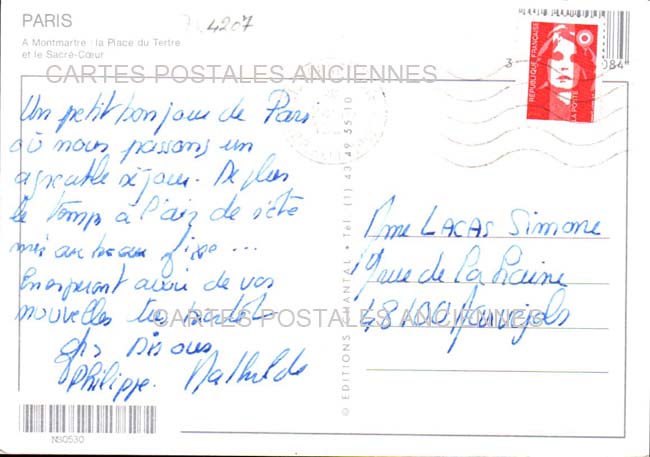 PARIS
A Montmartre : la Place du Tertre
et le Sacré-Cœur
4207
RÉPUBLIQUE FRANÇAISE
LA POSTE
3
084
CARTES POSTALES ANCIENNES
Un petit bonjour de Paris
où nous passons un
agréable séjour. De plus
le temps à l'air de s'être
mis au beau fixe ...
En esperant avoir de vos
nouvelles très bientôt
gros bisous
Philippe. Mathilde
Mme LACAS Simone
rue de la
48100 Marvejols
CARTES POSTALES ANCIENNES
© EDITIONS CHANTAL • Tél. (1) 43 49 55 10
NS0530